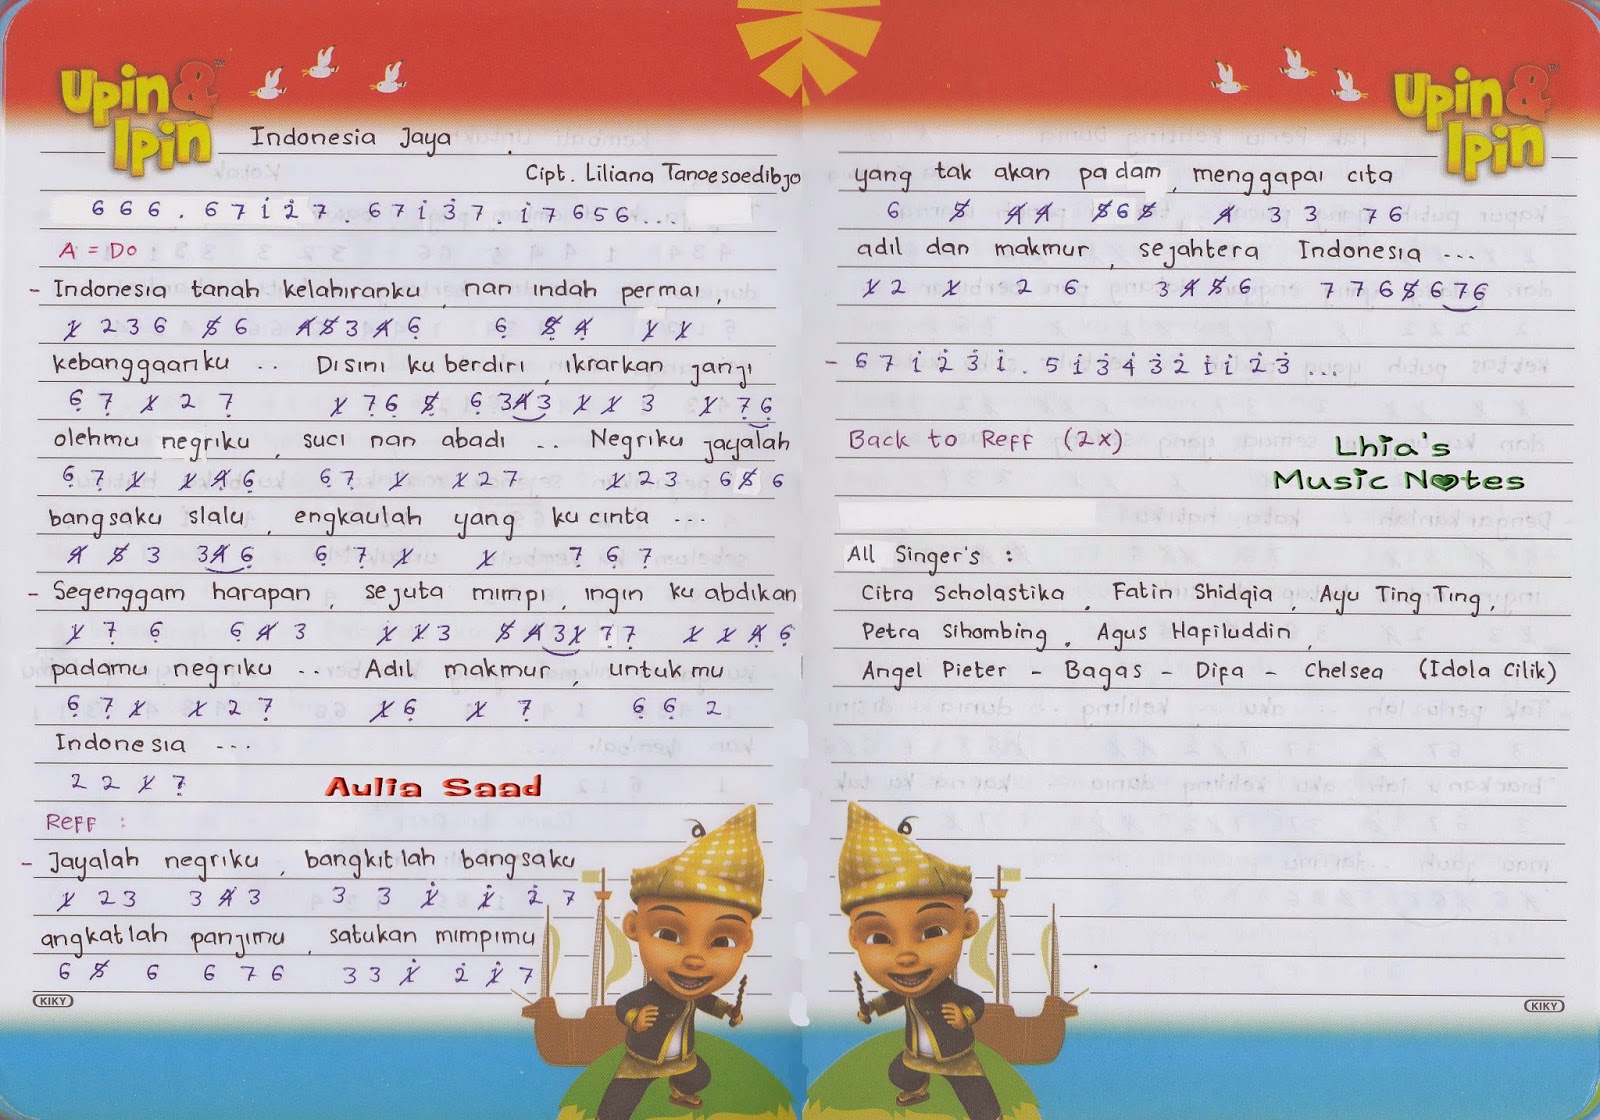 Upin & Ipin
Indonesia Jaya
Cipt. Liliana Tanoesoedibjo
6 6 6 . 6 7 1̇ 2̇ 7 . 6 7 1̇ 3̇ 7 . 1̇ 7 6 5 6 ...
A = Do
- Indonesia tanah kelahiranku, nan indah permai,
1̸ 2 3 6 5̸ 6 4̸ 5̸ 3 4̸ 6̣ 6 5̸ 4̸ 1̸ 1̸
kebanggaanku .. Disini ku berdiri, ikrarkan janji
6̣ 7̣ 1̸ 2 7̣ 1̸ 7̣ 6̣ 5̸̣ 6̣ 3 4̸ 3 1̸ 1̸ 3 1̸ 7̣ 6̣
olehmu negriku, suci nan abadi .. Negriku jayalah
6̣ 7̣ 1̸ 1̸ 4̸ 6̣ 6̣ 7̣ 1̸ 1̸ 2 7 1̸ 2 3 6 5̸ 6
bangsaku slalu, engkaulah yang ku cinta ...
4̸ 5̸ 3 3 4̸ 6̣ 6̣ 7̣ 1̸ 1̸ 7̣ 6̣ 7̣
- Segenggam harapan, sejuta mimpi, ingin ku abdikan
1̸ 7̣ 6̣ 6̣ 4̸ 3 1̸ 1̸ 3 5̸ 4̸ 3 1̸ 7̣ 7̣ 1̸ 1̸ 4̸ 6̣
padamu negriku .. Adil makmur, untukmu
6̣ 7̣ 1̸ 1̸ 2 7̣ 1̸ 6̣ 1̸ 7̣ 6̣ 6̣ 2
Indonesia ...
2 2 1̸ 7̣
Aulia Saad
Reff :
- Jayalah negriku, bangkitlah bangsaku
1̸ 2 3 3 4̸ 3 3 3 1̸̇ 1̸̇ 2̇ 7
angkatlah panjimu, satukan mimpimu
6 5̸ 6 6 7 6 3 3 1̸̇ 2̇ 1̸̇ 7
KIKY
Upin & Ipin
yang tak akan padam, menggapai cita
6 5̸ 4̸ 4̸ 5̸ 6 5̸ 4̸ 3 3 7 6
adil dan makmur, sejahtera Indonesia ...
1̸ 2 1̸ 2 6 3 4̸ 5̸ 6 7 7 6 5̸ 6 7 6
- 6 7 1̇ 2̇ 3̇ 1̇ . 5 1̇ 3̇ 4̇ 3̇ 2̇ 1̇ 1̇ 2̇ 3̇ ...
Back to Reff (2x)
Lhia's
Music Notes
All Singer's :
Citra Scholastika, Fatin Shidqia, Ayu Ting Ting,
Petra Sihombing, Agus Hafiluddin,
Angel Pieter - Bagas - Difa - Chelsea (Idola Cilik)
KIKY